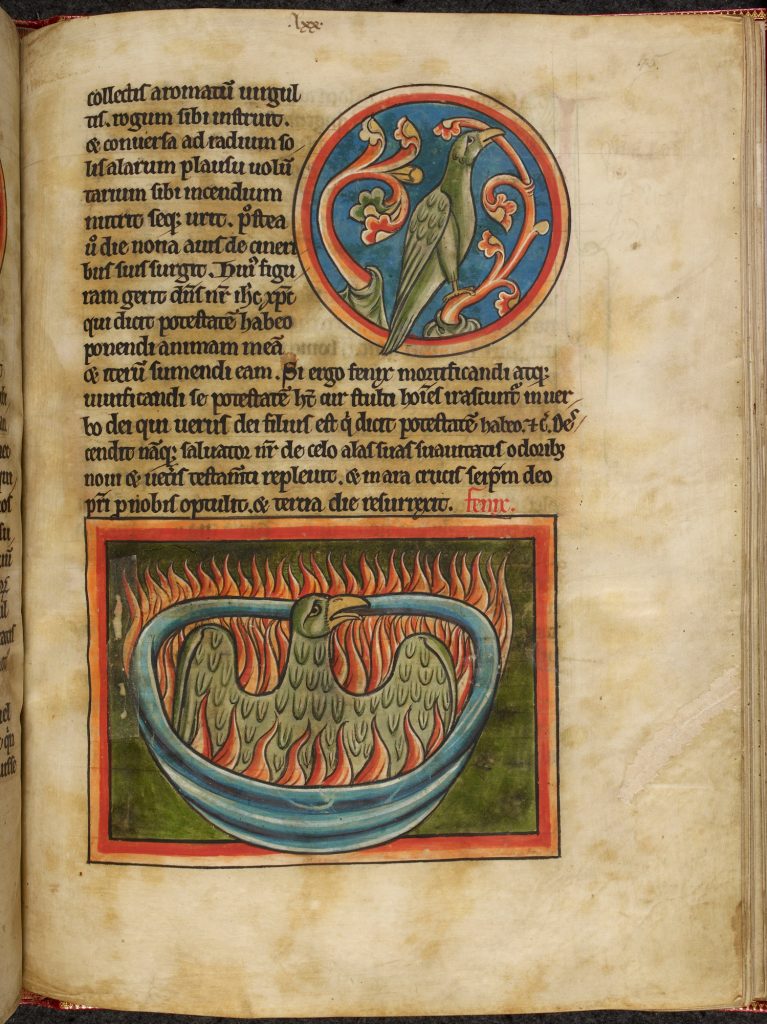 .lxx.
collectis aromatū uirgul
tis. rogum sibi instruit.
& conuersa ad radium so
lis alarum plausu uolū
tarium sibi incendium
nutrit seq; urit. p̾stea
ů die nona auis de cineri
bus suis surgit. Huiꝰ figu
ram gerit dn̄s nr̄ ih̄c xp̄c
qui dicit potestatē habeo
ponendi animam meā
& iterū sumendi eam. Si ergo fenix mortificandi atq;
uiuificandi se potestatē h̄t cur stulti hoīes irascunt᷑ in uer
bo dei qui uerus dei filius est q̇ dicit potestatē habeo. ⁊ c̄. Des
cendit nāq; saluator nr̄ de celo alas suas suauitatis odoribꝫ
noui & uet̾is testam̄ti repleuit. & in ara crucis seip̄m deo
pr̄i p nobis optulit. & tertia die resurrexit. fenix.